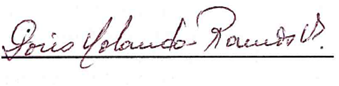 Doris Yolanda Ramos V.